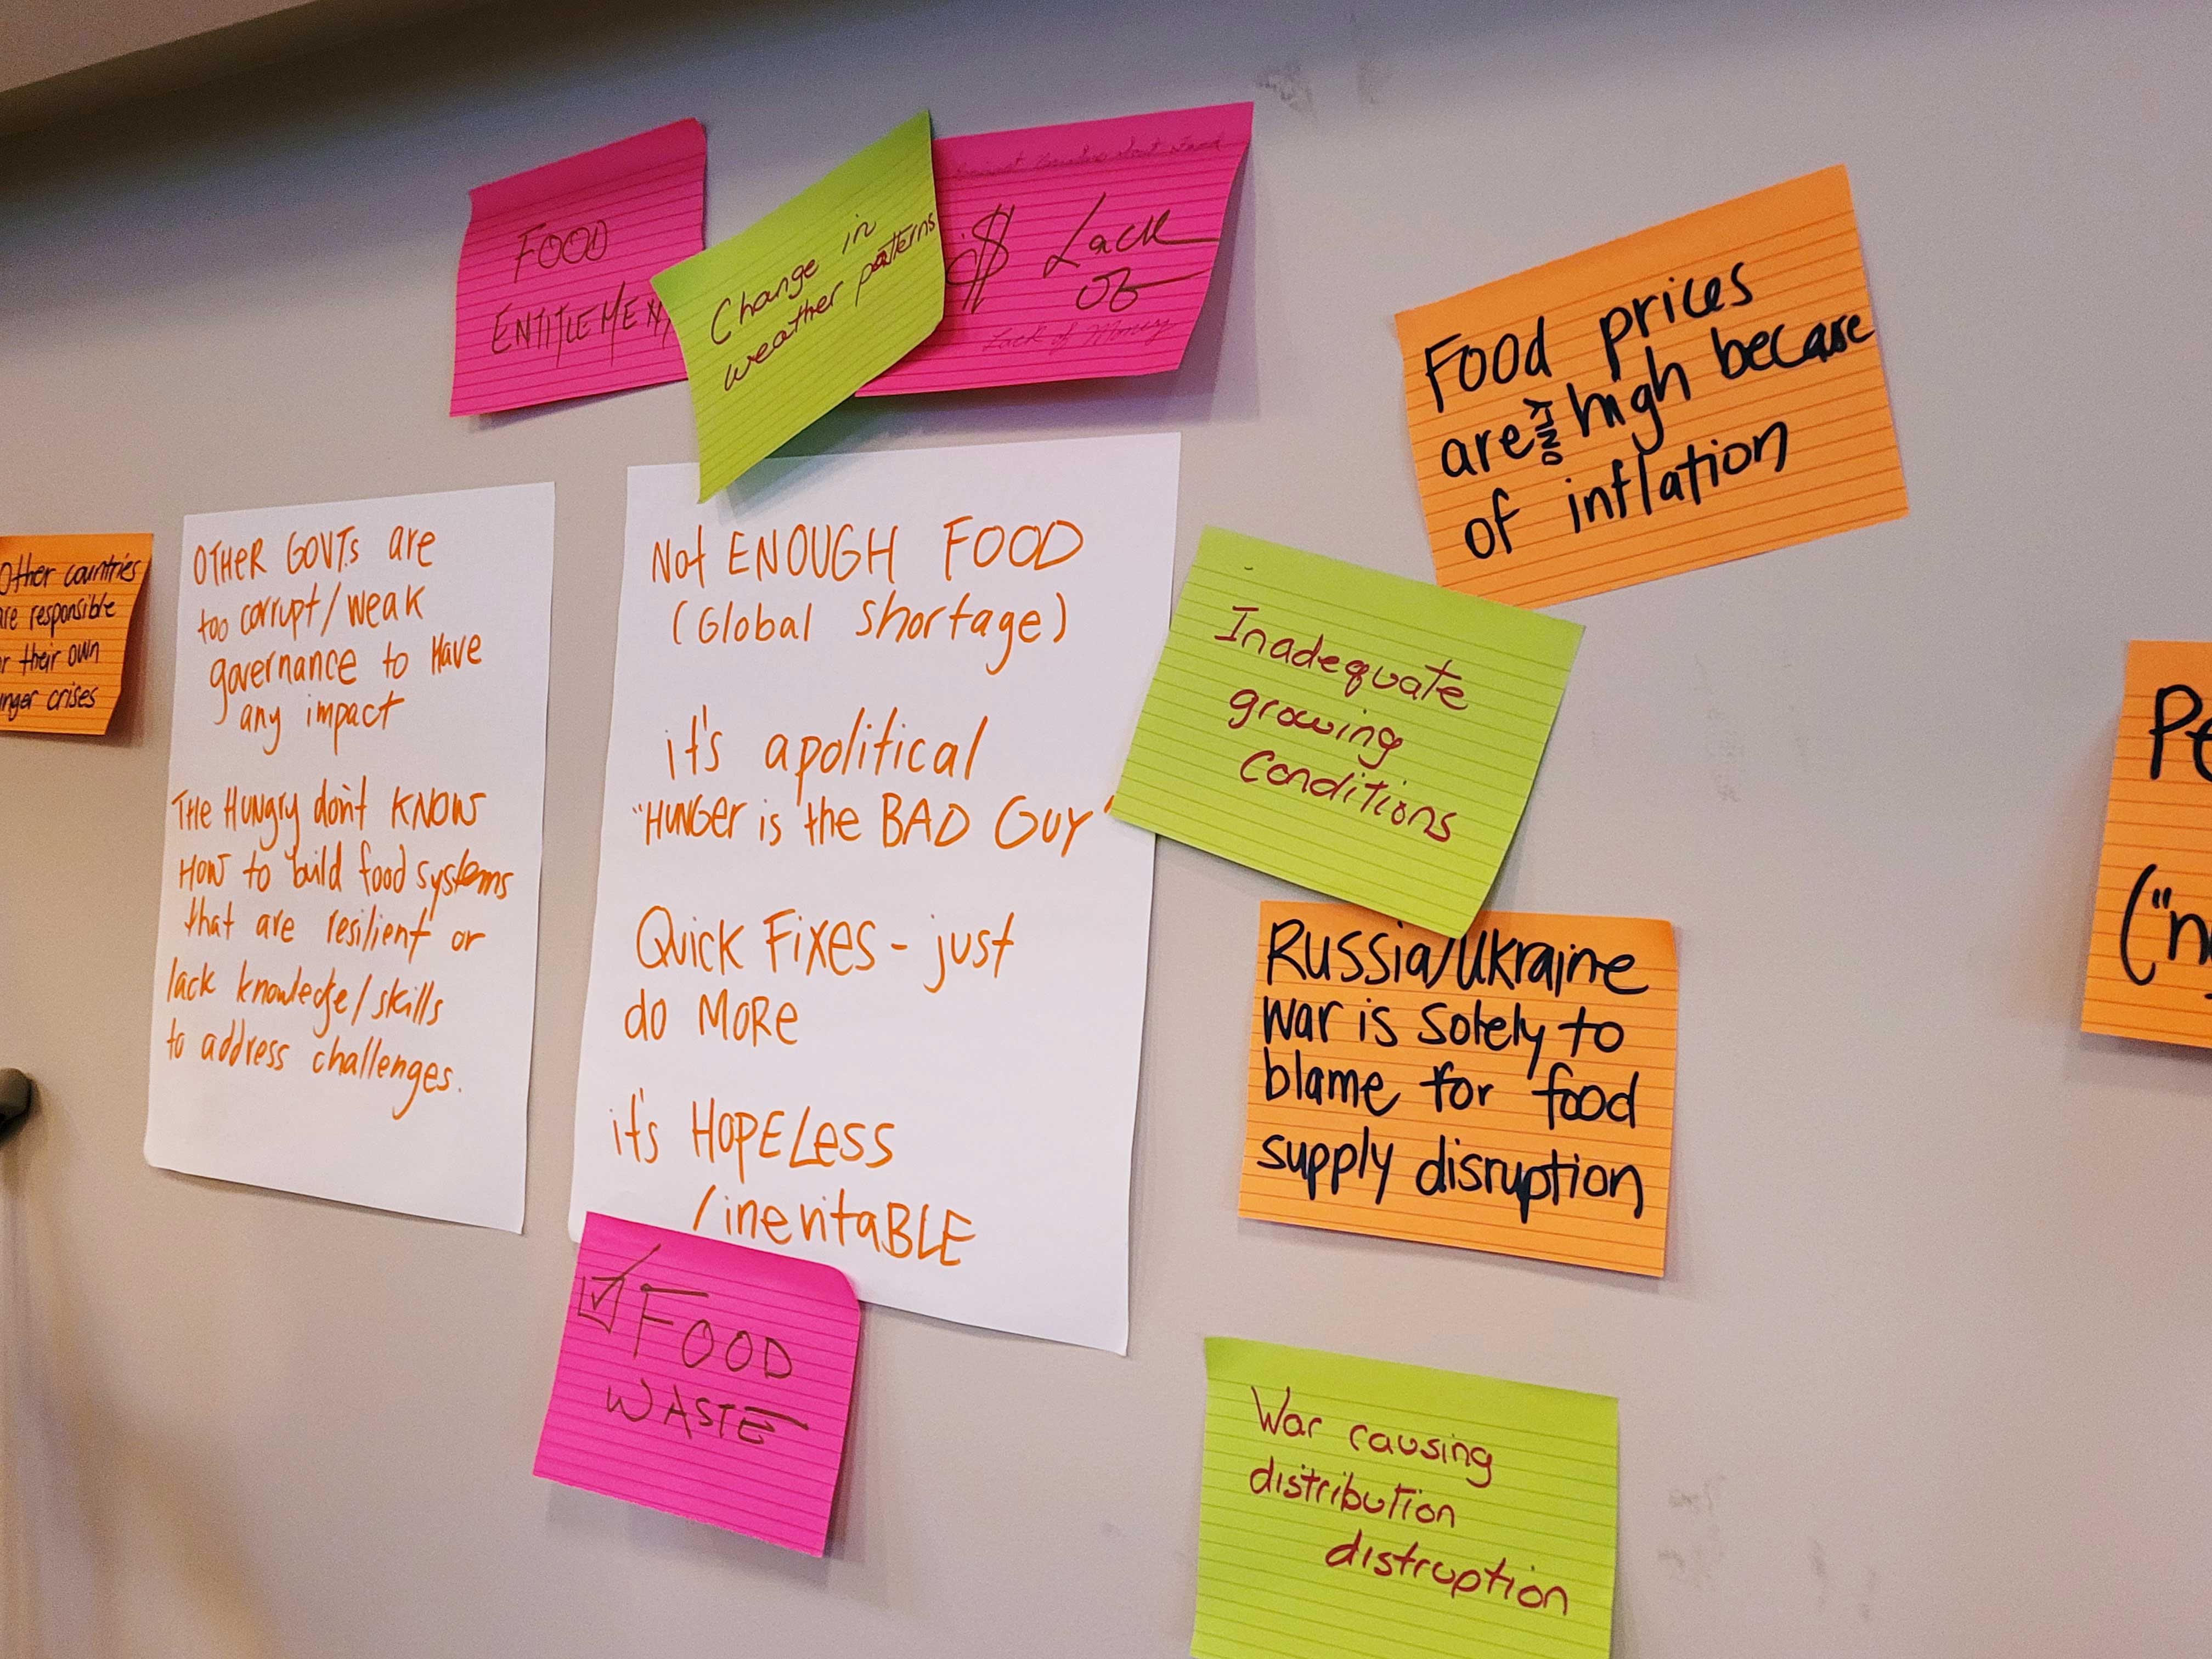 FOOD
ENTITLEMENT
Change in
weather patterns
$ Lack
of
Lack of Money
Food prices
are ONLY high because
of inflation
Other countries
are responsible
their own
crises
OTHER GOVTS are
too corrupt/weak
governance to Have
any impact
THE Hungry don't KNOW
HOW to build food systems
that are resilient or
lack knowledge/skills
to address challenges.
Not ENOUGH FOOD
(Global Shortage)
it's apolitical
"HUNGER is the BAD GUY"
Quick Fixes - just
do MORE
it's HOPELess
/inevitaBLE
Inadequate
growing
conditions
Russia/Ukraine
war is solely to
blame for food
supply disruption
FOOD
WASTE
War causing
distribution
distruption
("n